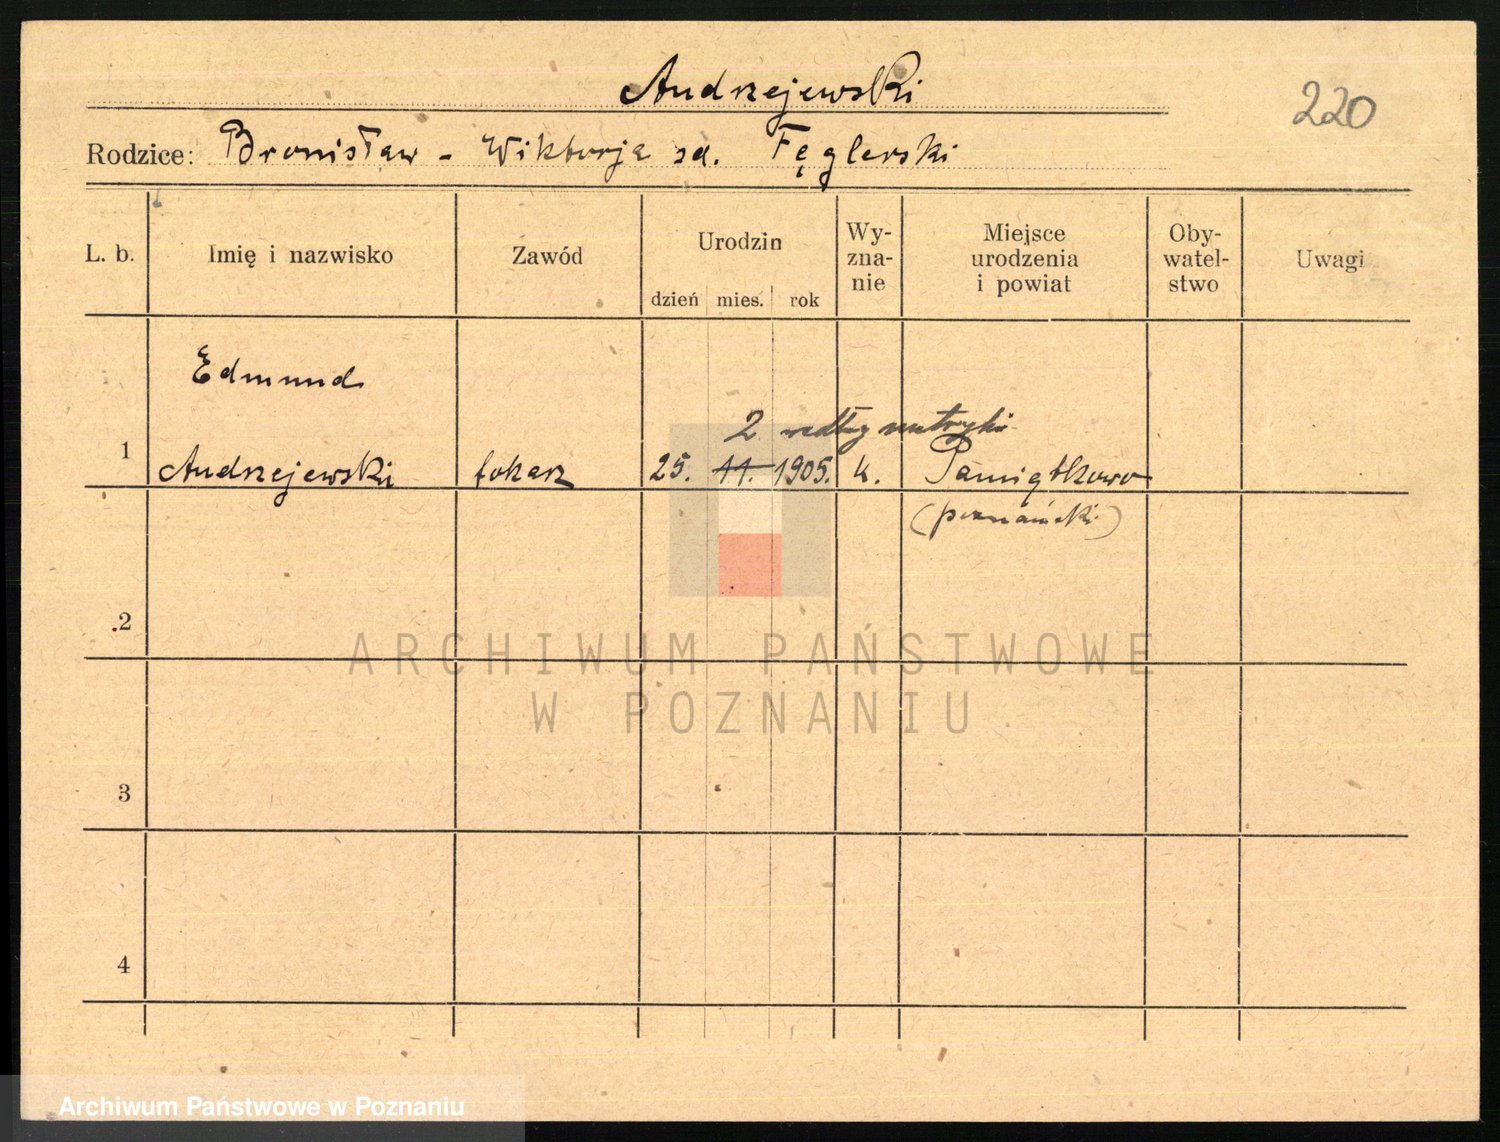 Andrzejewski
220
Rodzice: Bronisław - Wiktorja zd. Fęglerski
L. b.
Imię i nazwisko
Zawód
Urodzin
dzień mies. rok
Wy-
zna-
nie
Miejsce
urodzenia
i powiat
Oby-
watel-
stwo
Uwagi
Edmund
2 według metryki
1 Andrzejewski tokarz 25. 11. 1905. k. Pamiątkowo
(poznański)
2
ARCHIWUM PAŃSTWOWE
W POZNANIU
3
4
Archiwum Państwowe w Poznaniu